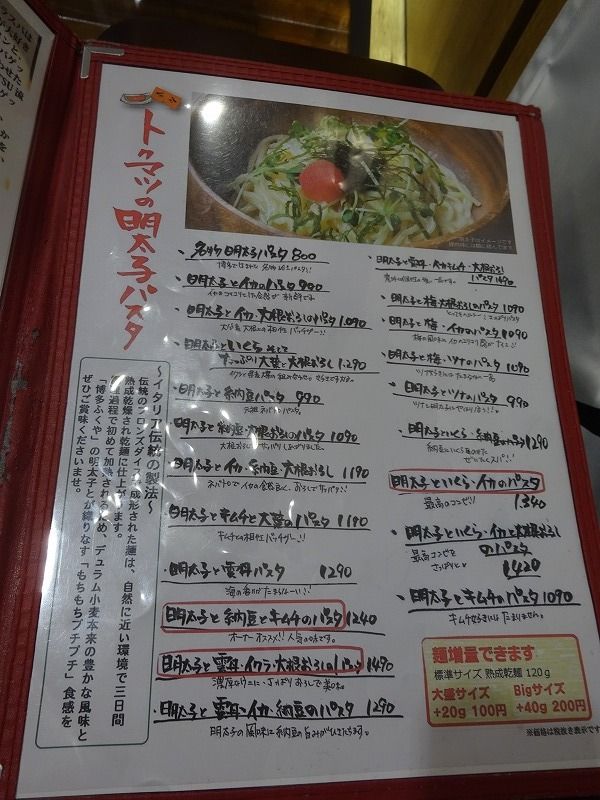 トクマツの明太子パスタ
明太子はイメージです
・名物 明太子パスタ 800
・明太子とイカのパスタ 990
・明太子とイカ・大根おろしのパスタ 1090
・明太子といくらそして
たっぷり大葉と大根おろし 1290
・明太子と納豆パスタ 990
・明太子と納豆・大根おろしのパスタ 1090
・明太子とイカ・納豆・大根おろし 1190
・明太子とキムチと大葉のパスタ 1190
キムチとの相性バッチグー!!
・明太子と雲丹パスタ 1290
海の香りがたまらなーい!!
・明太子と納豆とキムチのパスタ 1240
オーナーオススメ!! 人気の味です。
・明太子と雲丹・イクラ・大根おろしのパスタ 1490
濃厚なウニに、さっぱりおろしで美味。
・明太子と雲丹・イカ・納豆のパスタ 1290
明太子の風味に納豆の旨みがひきたちます。
・明太子と雲丹・イカキムチ・大根おろし
パスタ 1490
・明太子と梅・大根おろしのパスタ 1090
・明太子と梅・イカのパスタ 1090
・明太子と梅・ツナのパスタ 1090
・明太子とツナのパスタ 990
・明太子といくら・納豆のパスタ 1290
・明太子といくら・イカのパスタ
1340
最高のコンビ!!
・明太子といくら・イカと大根おろし
のパスタ
1420
最高コンビを
さっぱりと
・明太子とキムチのパスタ 1090
キムチ好きにはたまりません。
~イタリア伝統の製法~
伝統のブロンズダイスで成形された麺は、自然に近い環境で三日間
熟成乾燥され乾麺に仕上がります。
過程で初めて加熱されるため、デュラム小麦本来の豊かな風味と
「博多ふくや」の明太子とが織りなす「もちもちプチプチ」食感を
ぜひご賞味くださいませ。
麺増量できます
標準サイズ 熟成乾麺 120g
大盛サイズ Bigサイズ
+20g 100円 +40g 200円
※価格は税抜き表示です